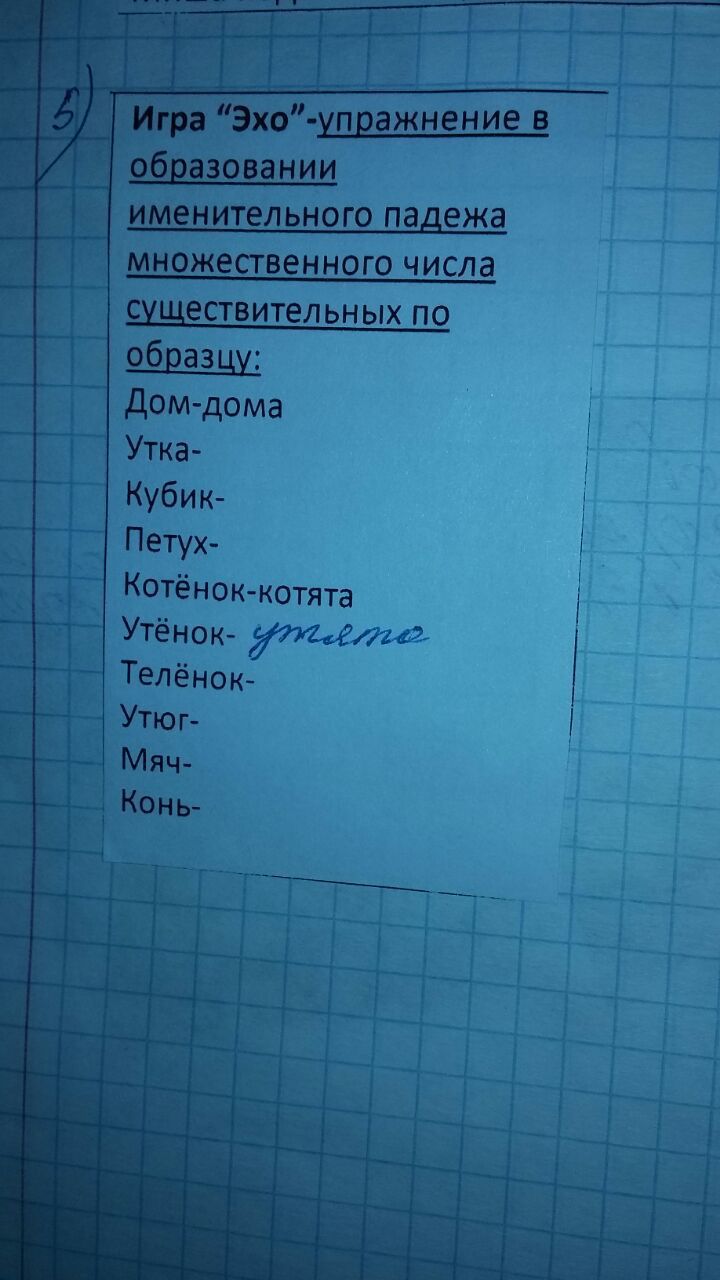 5)
Игра “Эхо”-упражнение в
образовании
именительного падежа
множественного числа
существительных по
образцу:
Дом-дома
Утка-
Кубик-
Петух-
Котёнок-котята
Утёнок- утята
Телёнок-
Утюг-
Мяч-
Конь-